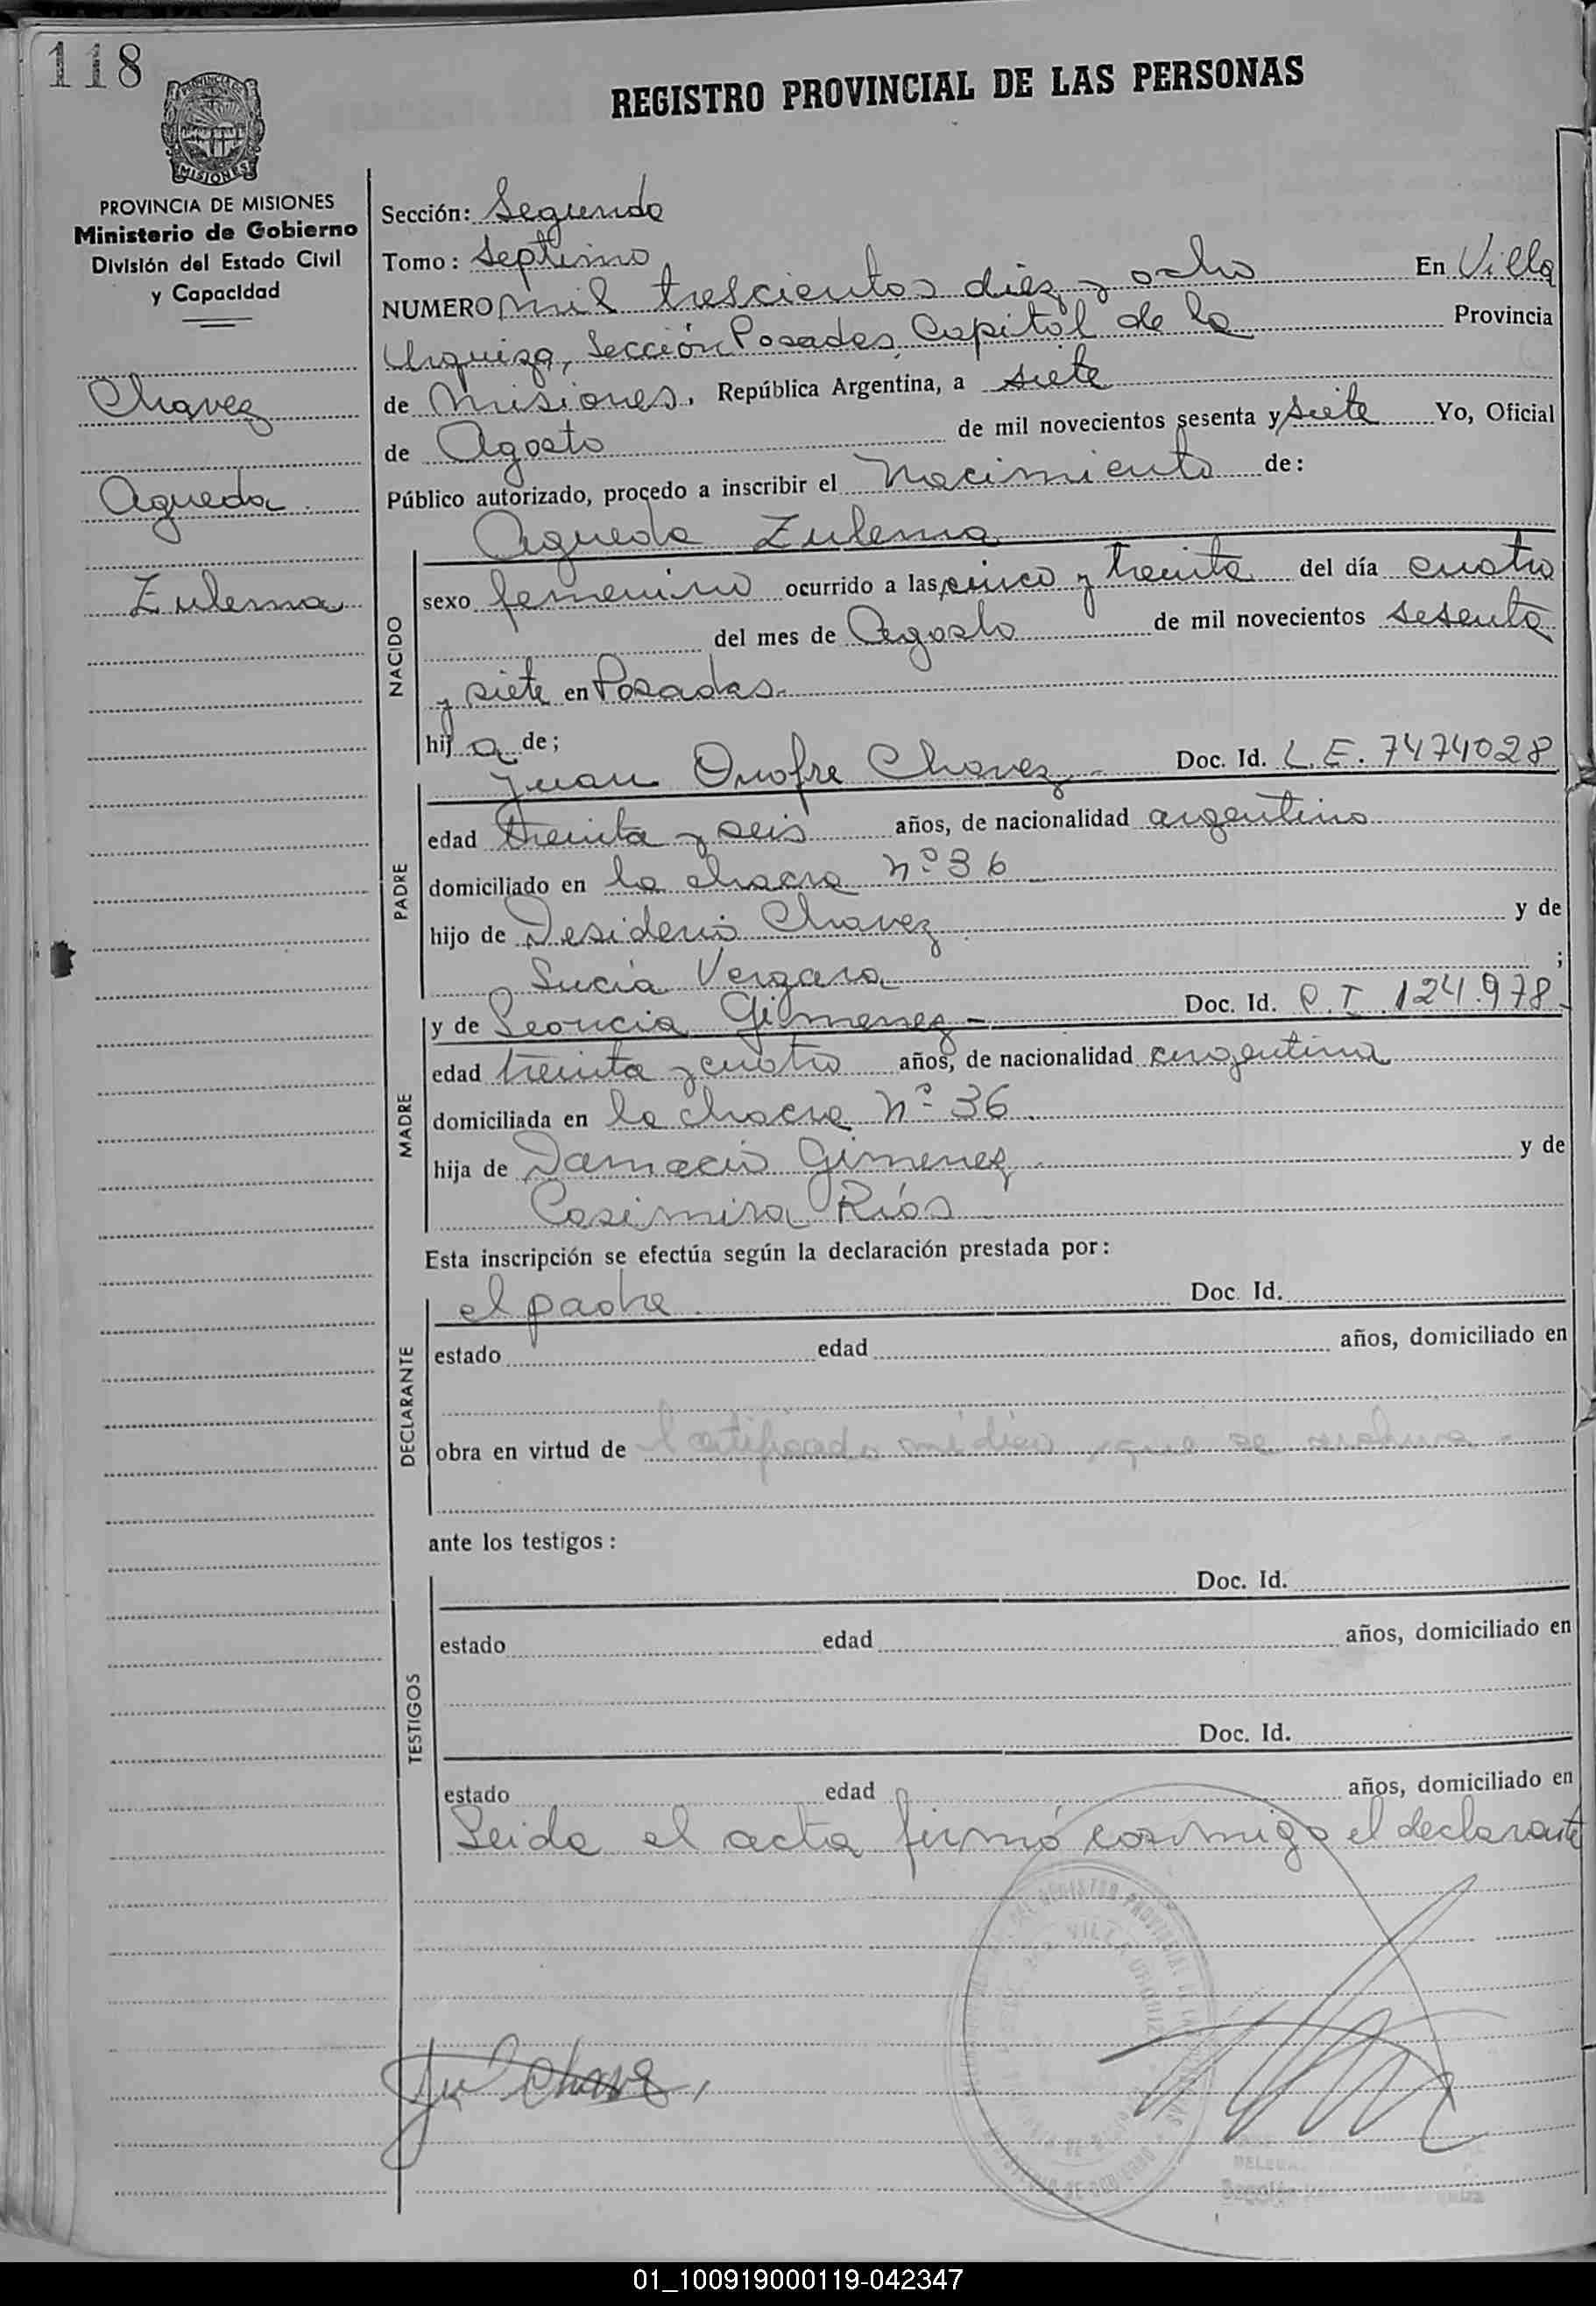 118
REGISTRO PROVINCIAL DE LAS PERSONAS
MISIONES
PROVINCIA DE MISIONES
Ministerio de Gobierno
División del Estado Civil
y Capacidad
Chavez
Agueda
Zulema
Sección: Segunda
Tomo: Septimo
NUMERO mil trescientos diez y ocho En Villa
Urquiza, Sección Posadas, Capital de la Provincia
de Misiones, República Argentina, a siete
de Agosto de mil novecientos sesenta y siete Yo, Oficial
Público autorizado, procedo a inscribir el Nacimiento de:
Agueda Zulema
NACIDO
sexo femenino ocurrido a las cinco y treinta del día cuatro
del mes de Agosto de mil novecientos sesenta
y siete en Posadas.
hij a de;
Juan Onofre Chavez - Doc. Id. L.E. 7474028
PADRE
edad treinta y seis años, de nacionalidad argentino
domiciliado en la chacra nº 36
hijo de Desiderio Chavez y de
Lucia Vergara ;
y de Leoncia Gimenez - Doc. Id. C.I. 124.978-
MADRE
edad treinta y cuatro años, de nacionalidad argentina
domiciliada en la chacra nº 36.
hija de Damacio Gimenez y de
Casimira Ríos
Esta inscripción se efectúa según la declaración prestada por:
DECLARANTE
el padre. Doc. Id.
estado edad años, domiciliado en
obra en virtud de certificado médico que se archiva -
ante los testigos:
TESTIGOS
Doc. Id.
estado edad años, domiciliado en
Doc. Id.
estado edad años, domiciliado en
Leida el acta firmó conmigo el declarante
Chavez,
01_100919000119-042347